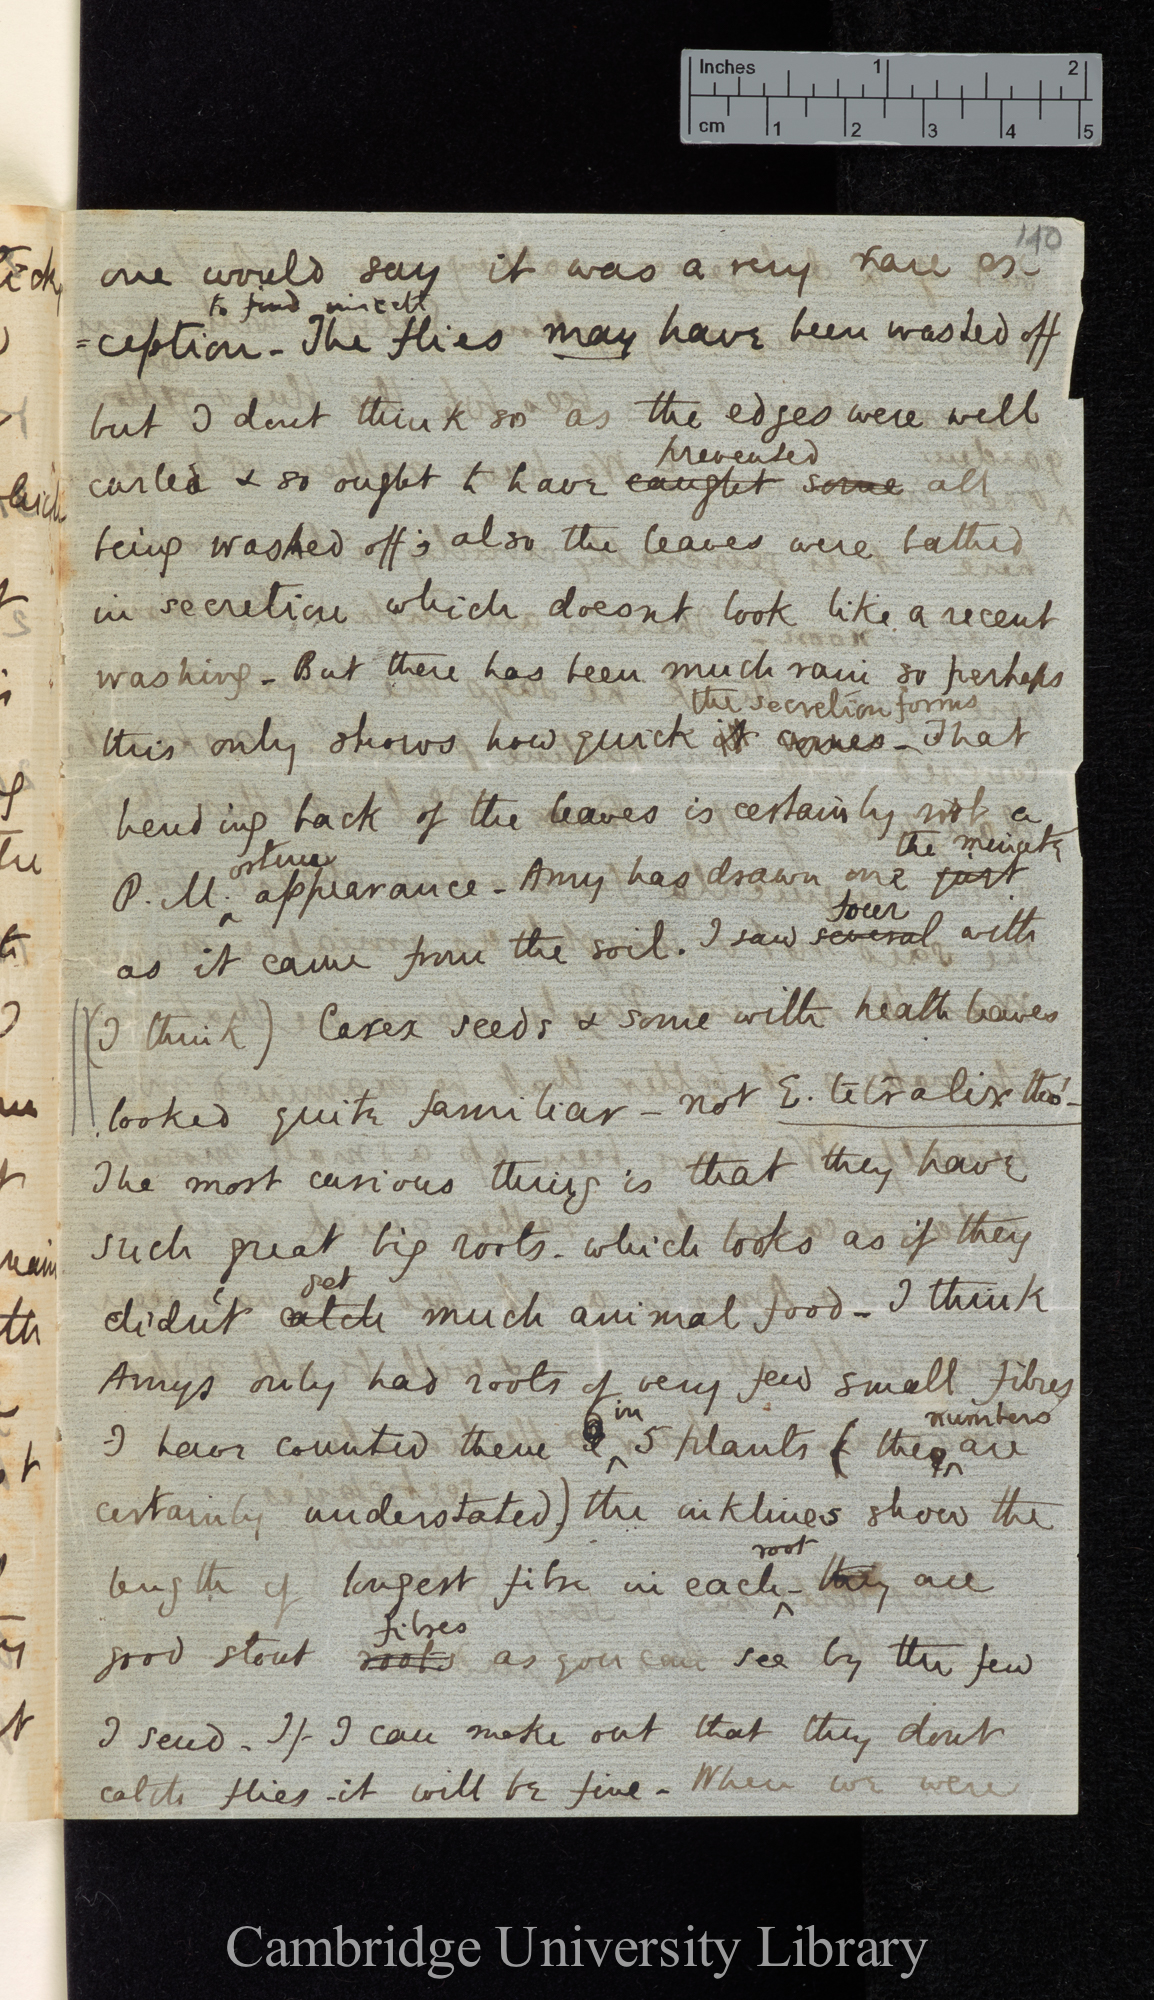 Inches 1 2
cm 1 2 3 4 5
140
one would say it was a very rare ex-
to find insects
=ception - The flies may have been washed off
but I dont think so as the edges were well
prevented
curled & so ought to have caught some all
being washed off; also the leaves were bathed
in secretion which doesnt look like a recent
washing - But there has been much rain so perhaps
the secretion forms
this only shows how quick it comes - That
bending back of the leaves is certainly not a
orteum the minute
P. M. appearance - Amy has drawn one just
four
as it came from the soil. I saw several with
(I think) Carex seeds & some with heath leaves
looked quite familiar - not E. tetralix tho' -
The most curious thing is that they have
such great big roots - which looks as if they
get
didn't catch much animal food - I think
Amys only had roots of very few small fibres
in numbers
I have counted there 5 plants ( the are
certainly understated) the inklines show the
root
length of longest fibre in each - they are
fibres
good stout roots as you can see by the few
I send - If I can make out that they dont
catch flies - it will be fine - When we were
Cambridge University Library